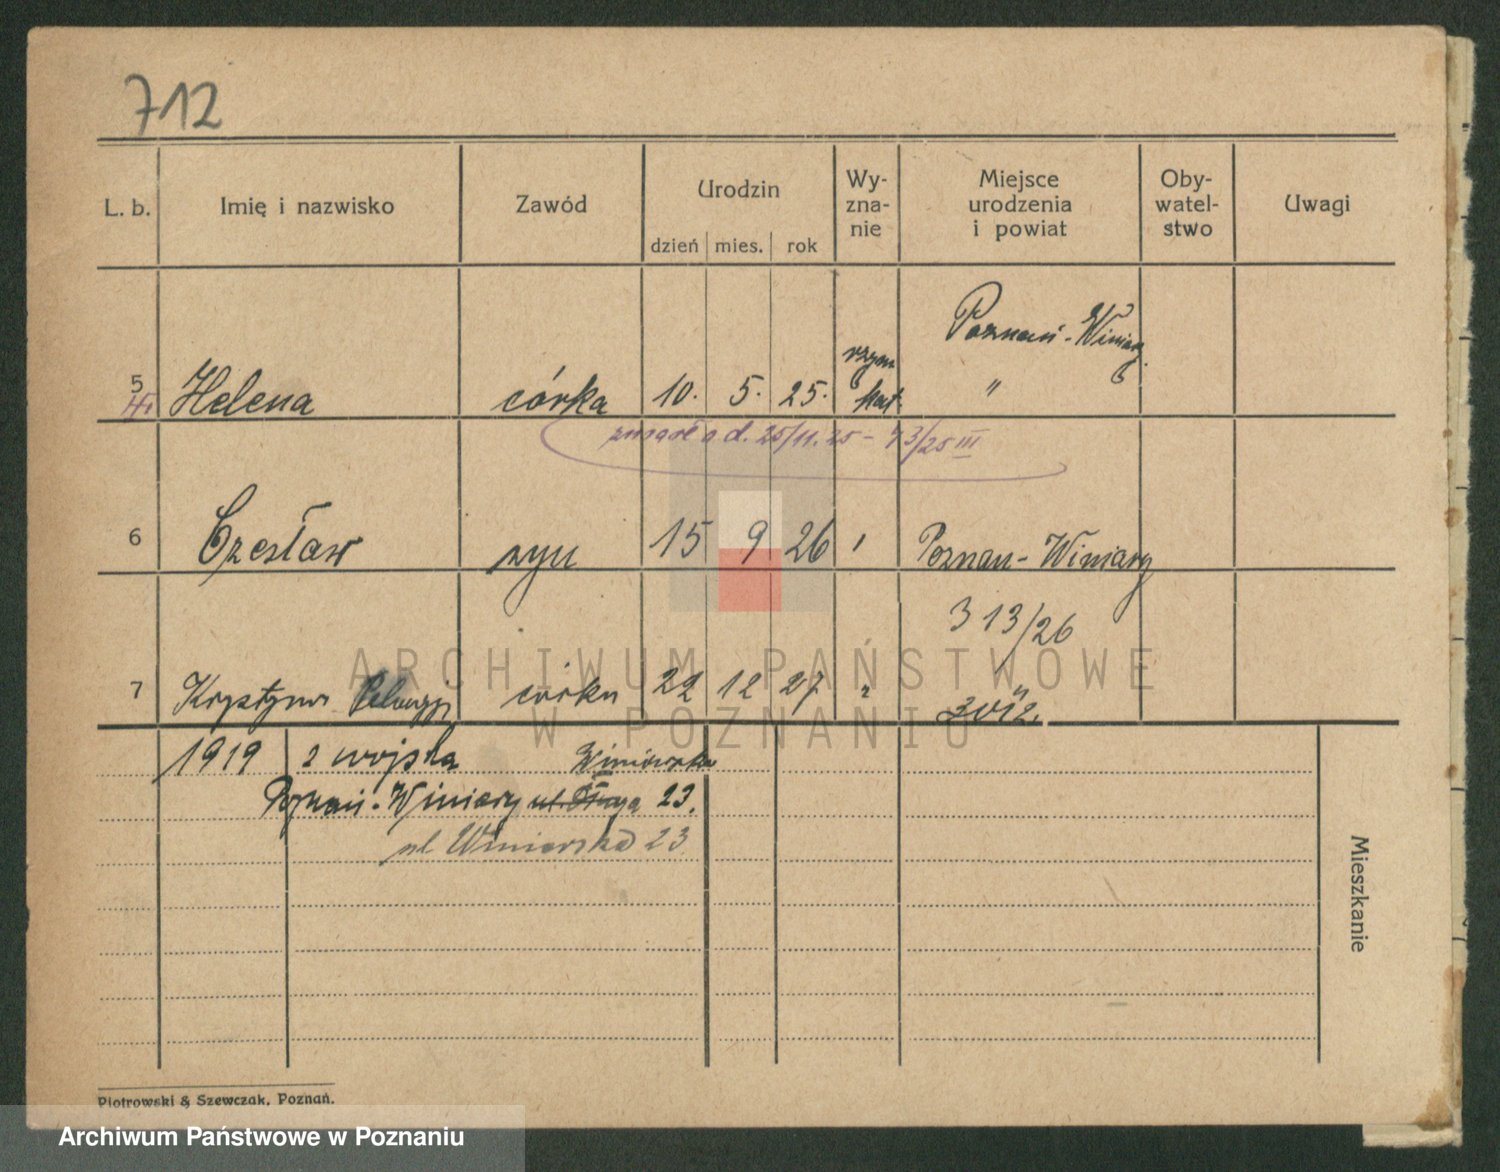 712
L. b. Imię i nazwisko Zawód Urodzin dzień mies. rok Wy-zna-nie Miejsce urodzenia i powiat Oby-watel-stwo Uwagi
Poznań-Winiary
5 Helena córka 10. 5. 25. rzym kat. "
zmarła d. 25/11.25 - 73/25 III
6 Czesław syn 15 9 26 Poznan-Winiary
3 13/26
7 Krystyna córka 22 12 27 "
1919 z wojska Winiarska
Poznań-Winiary ul. Długa 23.
ul Winiarska 23
Mieszkanie
Piotrowski & Szewczak, Poznań.
ARCHIWUM PAŃSTWOWE
W POZNANIU
Archiwum Państwowe w Poznaniu